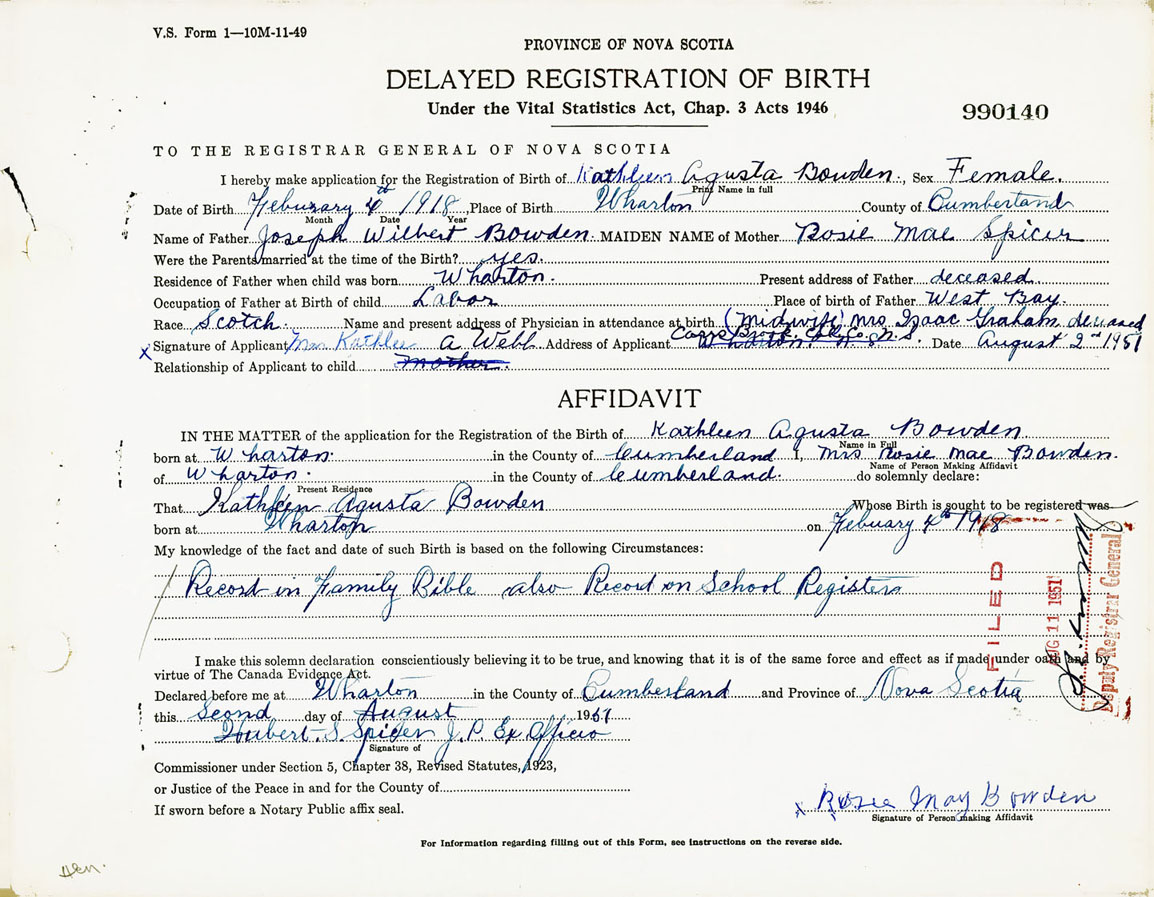 V.S. Form 1—10M-11-49
PROVINCE OF NOVA SCOTIA
DELAYED REGISTRATION OF BIRTH
Under the Vital Statistics Act, Chap. 3 Acts 1946
990140
TO THE REGISTRAR GENERAL OF NOVA SCOTIA
I hereby make application for the Registration of Birth of Kathleen Agusta Bowden, Sex Female.
Print Name in full
Date of Birth Febuary 4th 1918 Place of Birth Wharton County of Cumberland
Month Date Year
Name of Father Joseph Wilbert Bowden. MAIDEN NAME of Mother Rosie Mae Spicer
Were the Parents married at the time of the Birth? yes.
Residence of Father when child was born Wharton. Present address of Father deceased
Occupation of Father at Birth of child Labor Place of birth of Father West Bay.
Race Scotch. Name and present address of Physician in attendance at birth (Midwife) Mrs Isaac Graham, deceased
x Signature of Applicant Mrs Kathleen A Webb Address of Applicant Date August 2nd 1951
Relationship of Applicant to child mother.
AFFIDAVIT
IN THE MATTER of the application for the Registration of the Birth of Kathleen Agusta Bowden
Name in Full
born at Wharton. in the County of Cumberland I, Mrs Rosie Mae Bowden.
Name of Person Making Affidavit
of Wharton. in the County of Cumberland. do solemnly declare:
Present Residence
That Kathleen Agusta Bowden Whose Birth is sought to be registered was
born at Wharton on Febuary 4th 1918
My knowledge of the fact and date of such Birth is based on the following Circumstances:
Record in Family Bible also Record on School Registers
FILED
AUG 11 1951
Deputy Registrar General
I make this solemn declaration conscientiously believing it to be true, and knowing that it is of the same force and effect as if made under oath and by
virtue of The Canada Evidence Act.
Declared before me at Wharton in the County of Cumberland and Province of Nova Scotia
this Second day of August 1951
Hubert S Spicer J. P. Ex Officio
Signature of
Commissioner under Section 5, Chapter 38, Revised Statutes, 1923,
or Justice of the Peace in and for the County of
If sworn before a Notary Public affix seal.
x Rosie May Bowden
Signature of Person making Affidavit
For Information regarding filling out of this Form, see instructions on the reverse side.